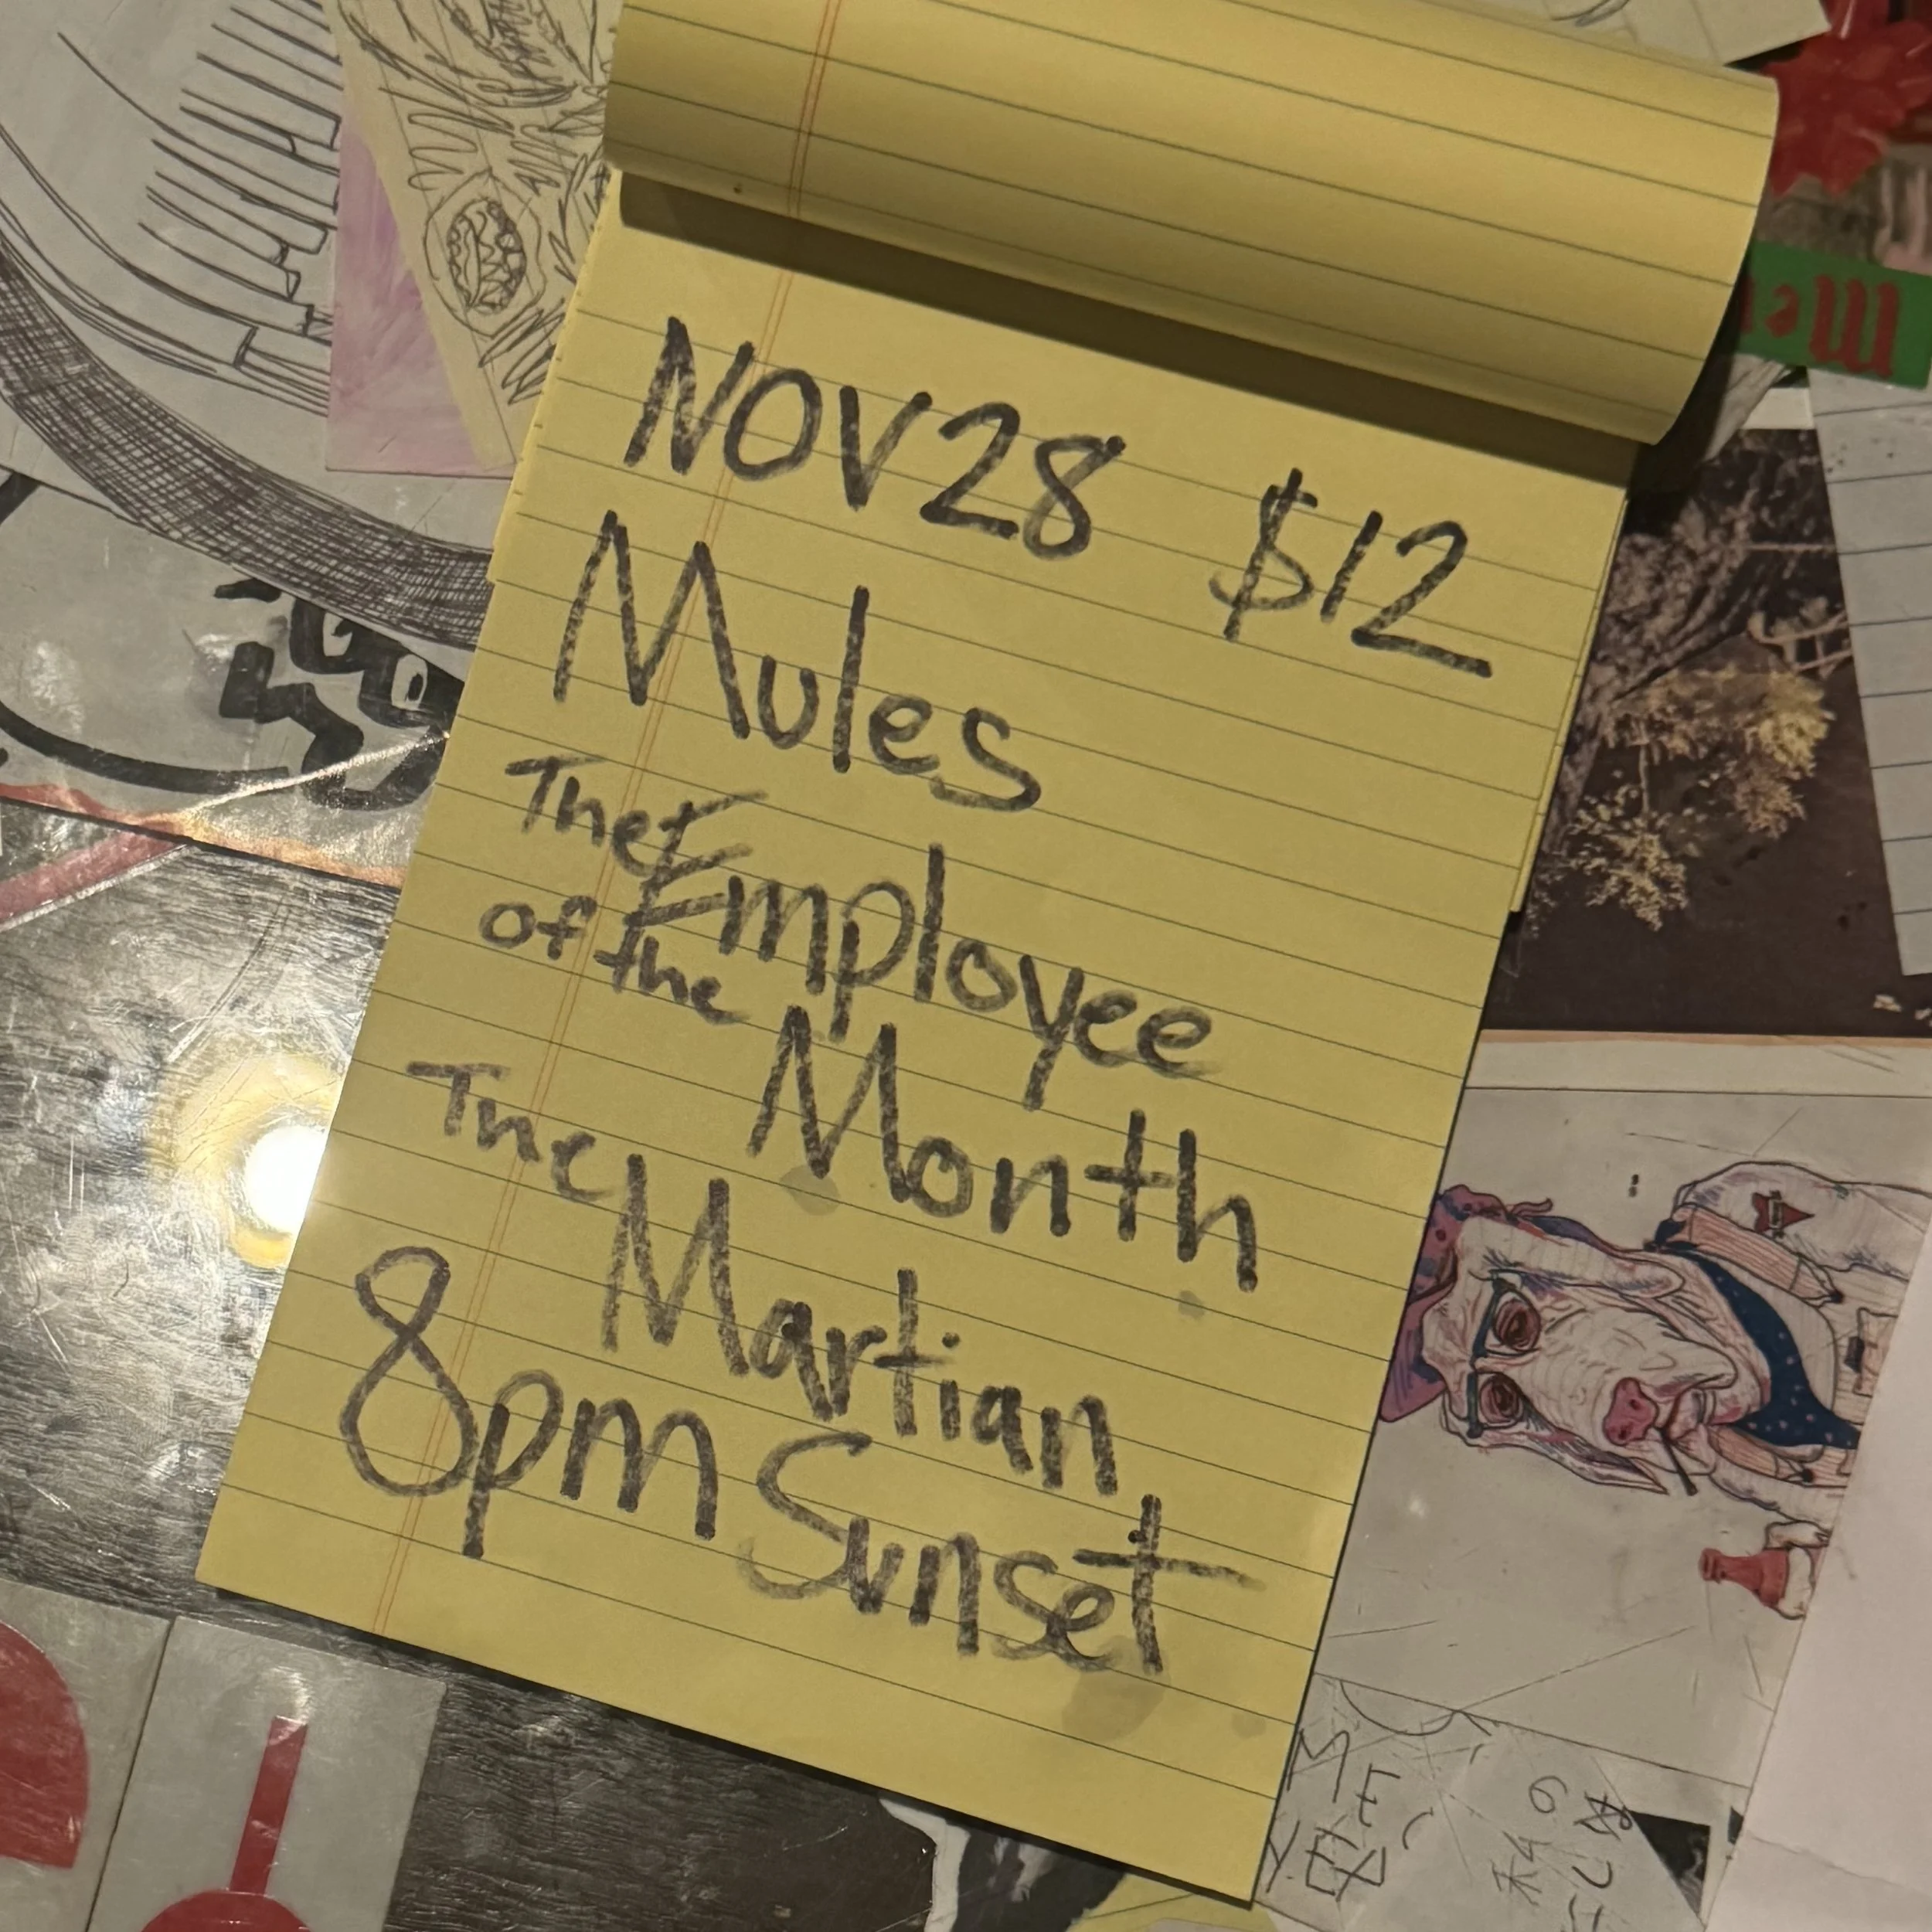 NOV 28 $12
Mules
The Employee
of the Month
The Martian
8pm Sunset
Me
ME
YER